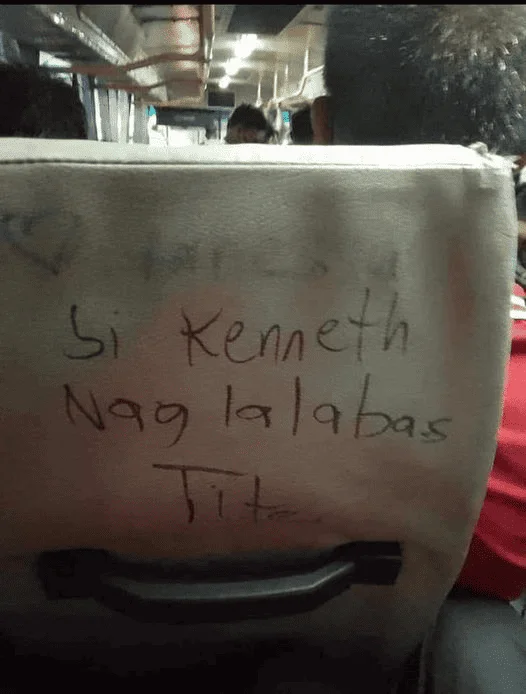 Si Kenneth
Nag lalabas